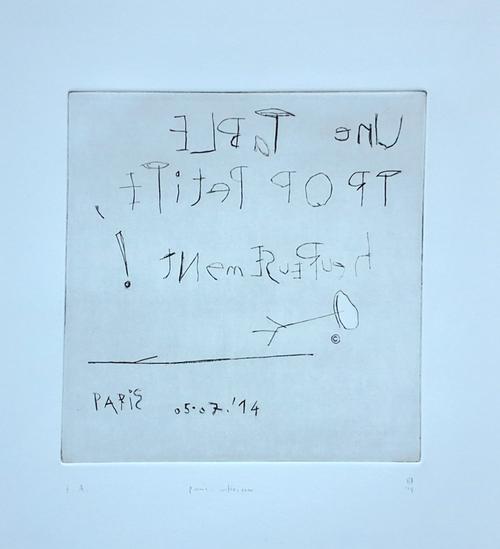 UNe TaBLE
TROP PetiTE
heuREUSEmeNt !
©
PARiS 05.07.'14